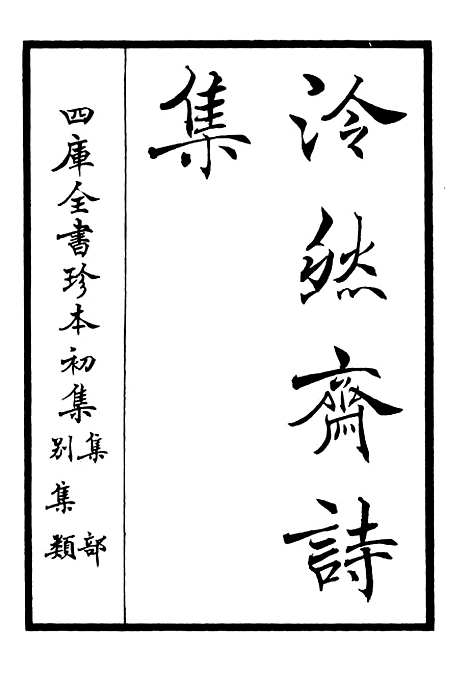 泠然齋詩
集
四庫全書珍本初集
集部
別集類